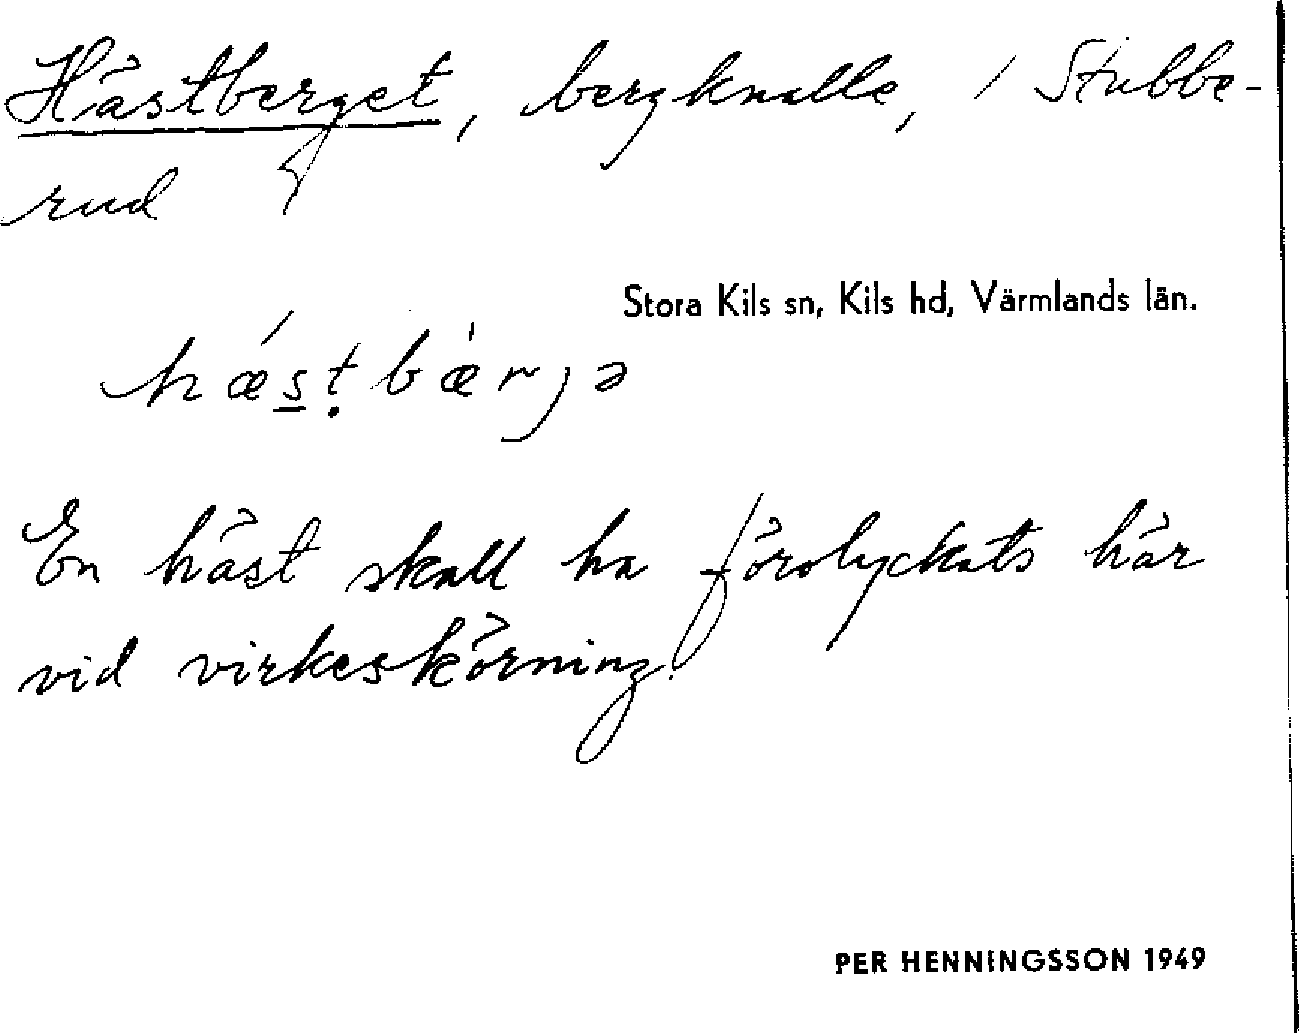 Hästberget, bergknalle, i Stubbe-
rud
Stora Kils sn, Kils hd, Värmlands län.
hǽs̱ṭbæ̀rjə
En häst skall ha förolyckats här
vid virkeskörning.
PER HENNINGSSON 1949